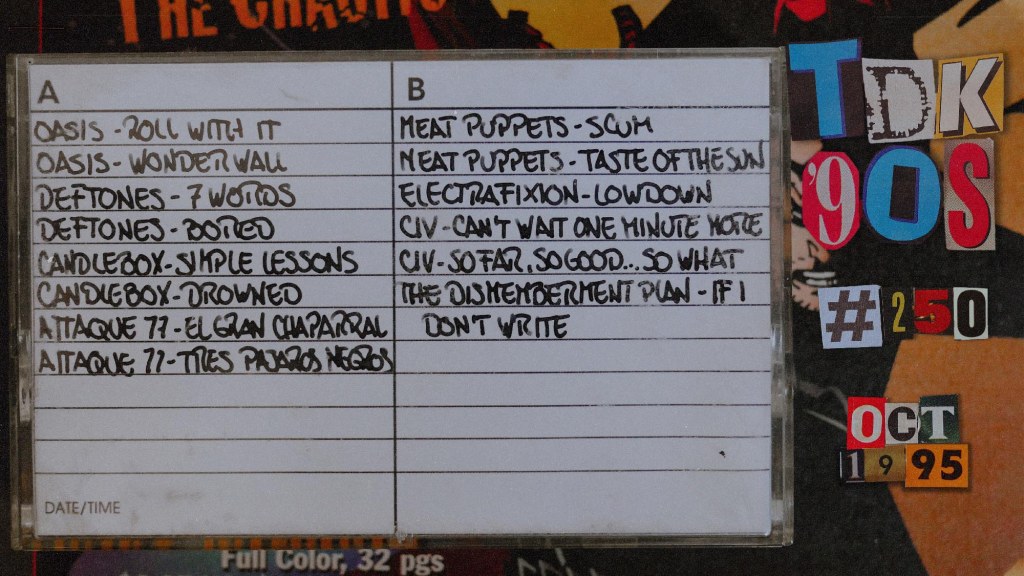 THE CHAOTIC
A
OASIS - ROLL WITH IT
OASIS - WONDERWALL
DEFTONES - 7 WORDS
DEFTONES - BORED
CANDLEBOX - SIMPLE LESSONS
CANDLEBOX - DROWNED
ATTAQUE 77 - EL GRAN CHAPARRAL
ATTAQUE 77 - TRES PAJAROS NEGROS
DATE/TIME
B
MEAT PUPPETS - SCUM
MEAT PUPPETS - TASTE OF THE SUN
ELECTRAFIXION - LOWDOWN
CIV - CAN'T WAIT ONE MINUTE MORE
CIV - SO FAR, SO GOOD... SO WHAT
THE DISMEMBERMENT PLAN - IF I
DON'T WRITE
TDK
'90S
#250
OCT
1995
Full Color, 32 pgs